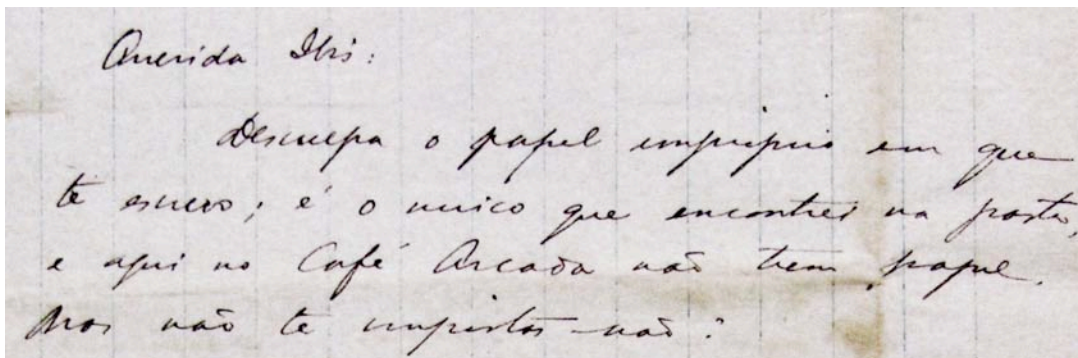 Querida Ibis:
Desculpa o papel improprio em que
te escrevo; é o unico que encontrei na pasta,
e aqui no Café Arcada não teem papel.
Mas não te importas, não?